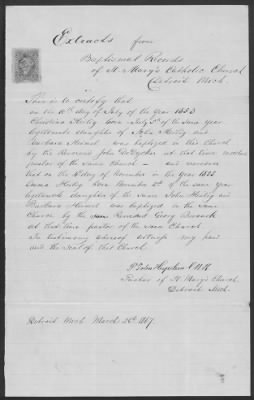 Extracts from
Baptismal Records
of St. Mary's Catholic Church
Detroit Mich.
This is to certify that
on the 10th day of July of the Year 1853
Christina Heilig born July 5th of the same Year
legitimate daughter of John Heilig and
Barbara Heimel was baptized in this Church
by the Reverend John De at that time
pastor of the same Church — and moreover
that on the day of November in the Year 1855
Emma Heilig born November 2d of the same year
legitimate daughter of the same John Heilig and
Barbara Heimel was baptized in the same
Church by the Reverend Georg
at that time pastor of the same Church.
In testimony whereof witness my hand
and the Seal of this Church.
Pastor of St Mary's Church.
Detroit Mich.
Detroit Mich March 28th 1867.